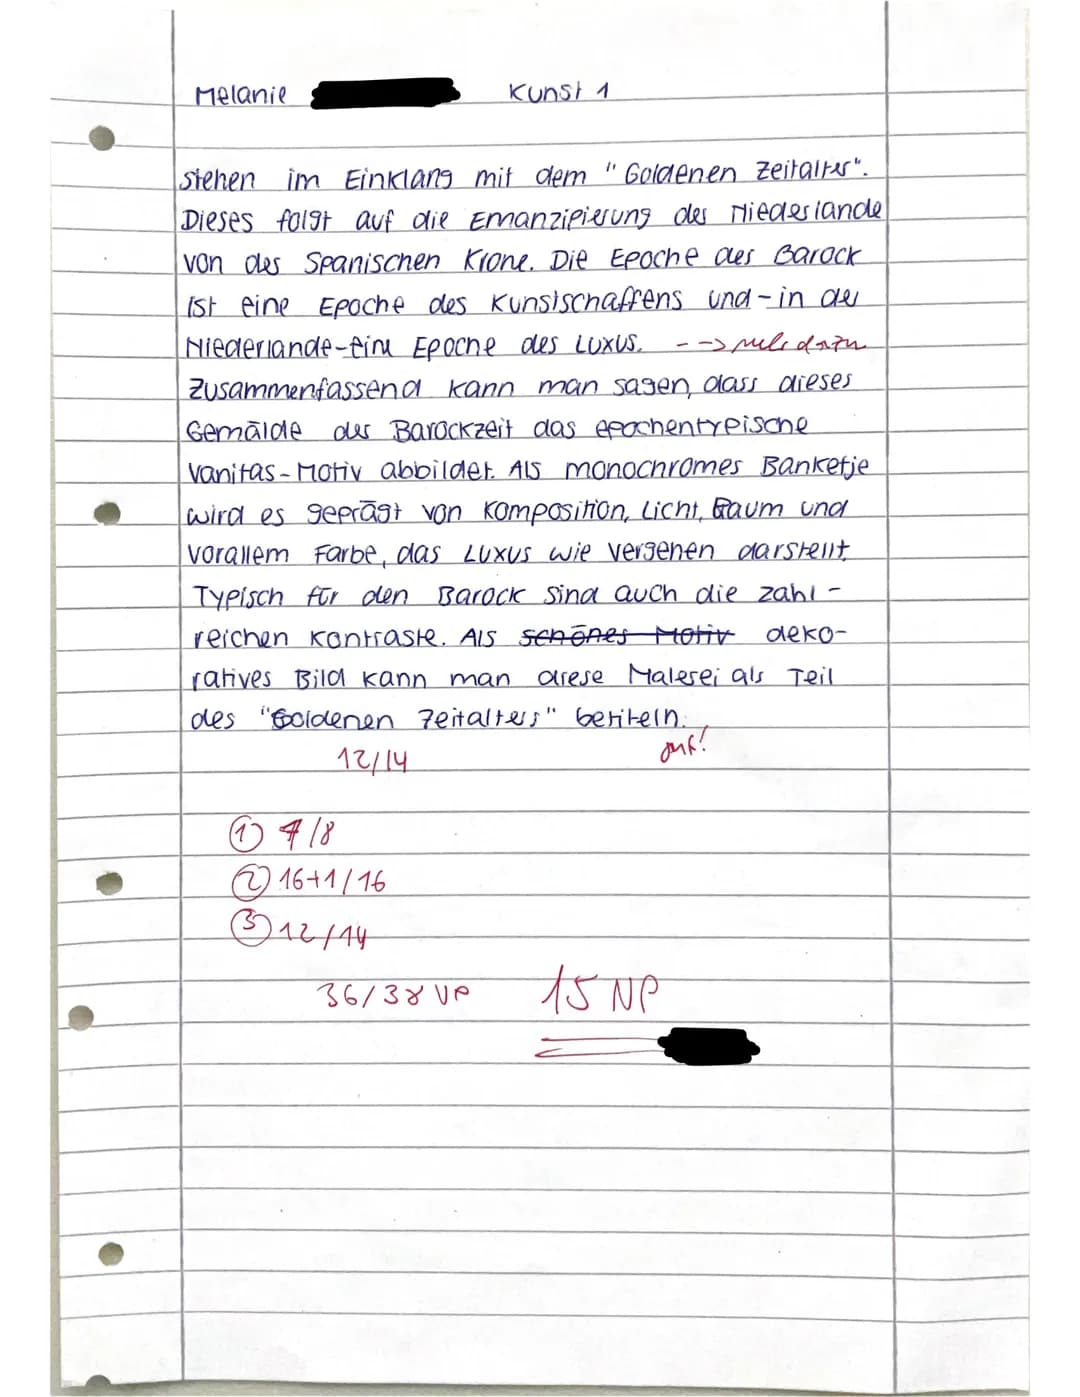 Melanie Kunst 1
stehen im Einklang mit dem "Goldenen Zeitalter".
Dieses folgt auf die Emanzipierung der Niederlande
von der Spanischen Krone. Die Epoche des Barock
ist eine Epoche des Kunstschaffens und-in der
Niederlande-eine Epoche des Luxus. --> mehr dazu
Zusammenfassend kann man sagen, dass dieses
Gemälde der Barockzeit das epochentypische
Vanitas-Motiv abbildet. Als monochromes Banketje
wird es geprägt von Komposition, Licht, Raum und
vorallem Farbe, das Luxus wie Vergehen darstellt.
Typisch für den Barock sind auch die zahl-
reichen Kontraste. Als schönes Motiv deko-
ratives Bild kann man diese Malerei als Teil
des "Goldenen Zeitalters" betiteln.
12/14 gut!
① 7/8
② 16+1/16
③ 12/14
36/38 VP 15 NP